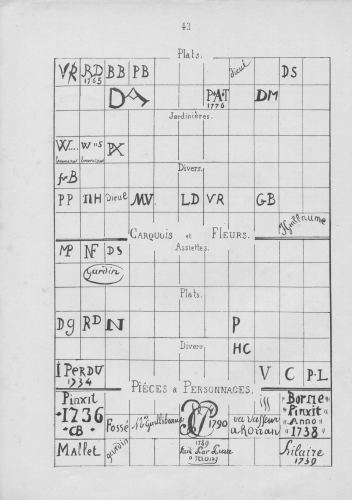 43
Plats.
VR RD BB PB Dieul DS
1765
DA P*A*T DM
1776
Jardinières.
W... W**S PX
Divers,
frB
PP NH Dieul MV. LD VR GB Guillaume
CARQUOIS et FLEURS.
Assiettes.
MP NF DS
Gardin
Plats.
Dg RD N P
Divers, HC
I PERDU V C P-L
1734
PIÈCES à PERSONNAGES.
Pinxit
1736
CB
Fossé
1790
Vavasseur
a Rouan
iss
"Borne"
"Pinxit"
"Anno"
"1738"
Mallet gardin
1789
hilaire
1739